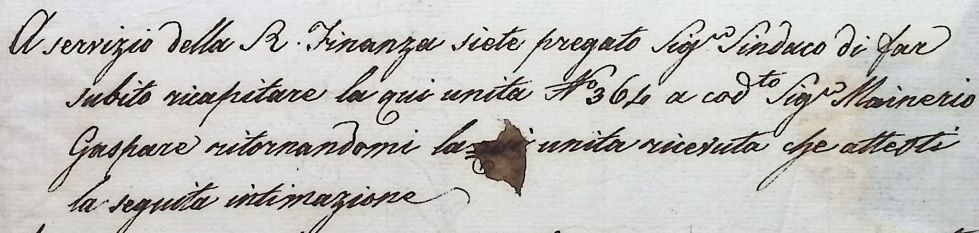 A servizio della R. Finanza siete pregato Sig.ro Sindaco di far
subito ricapitare la qui unita N.o 364 a cod.to Sig.ro Mainerio
Gaspare ritornandomi la unita ricevuta che attesti
la seguita intimazione